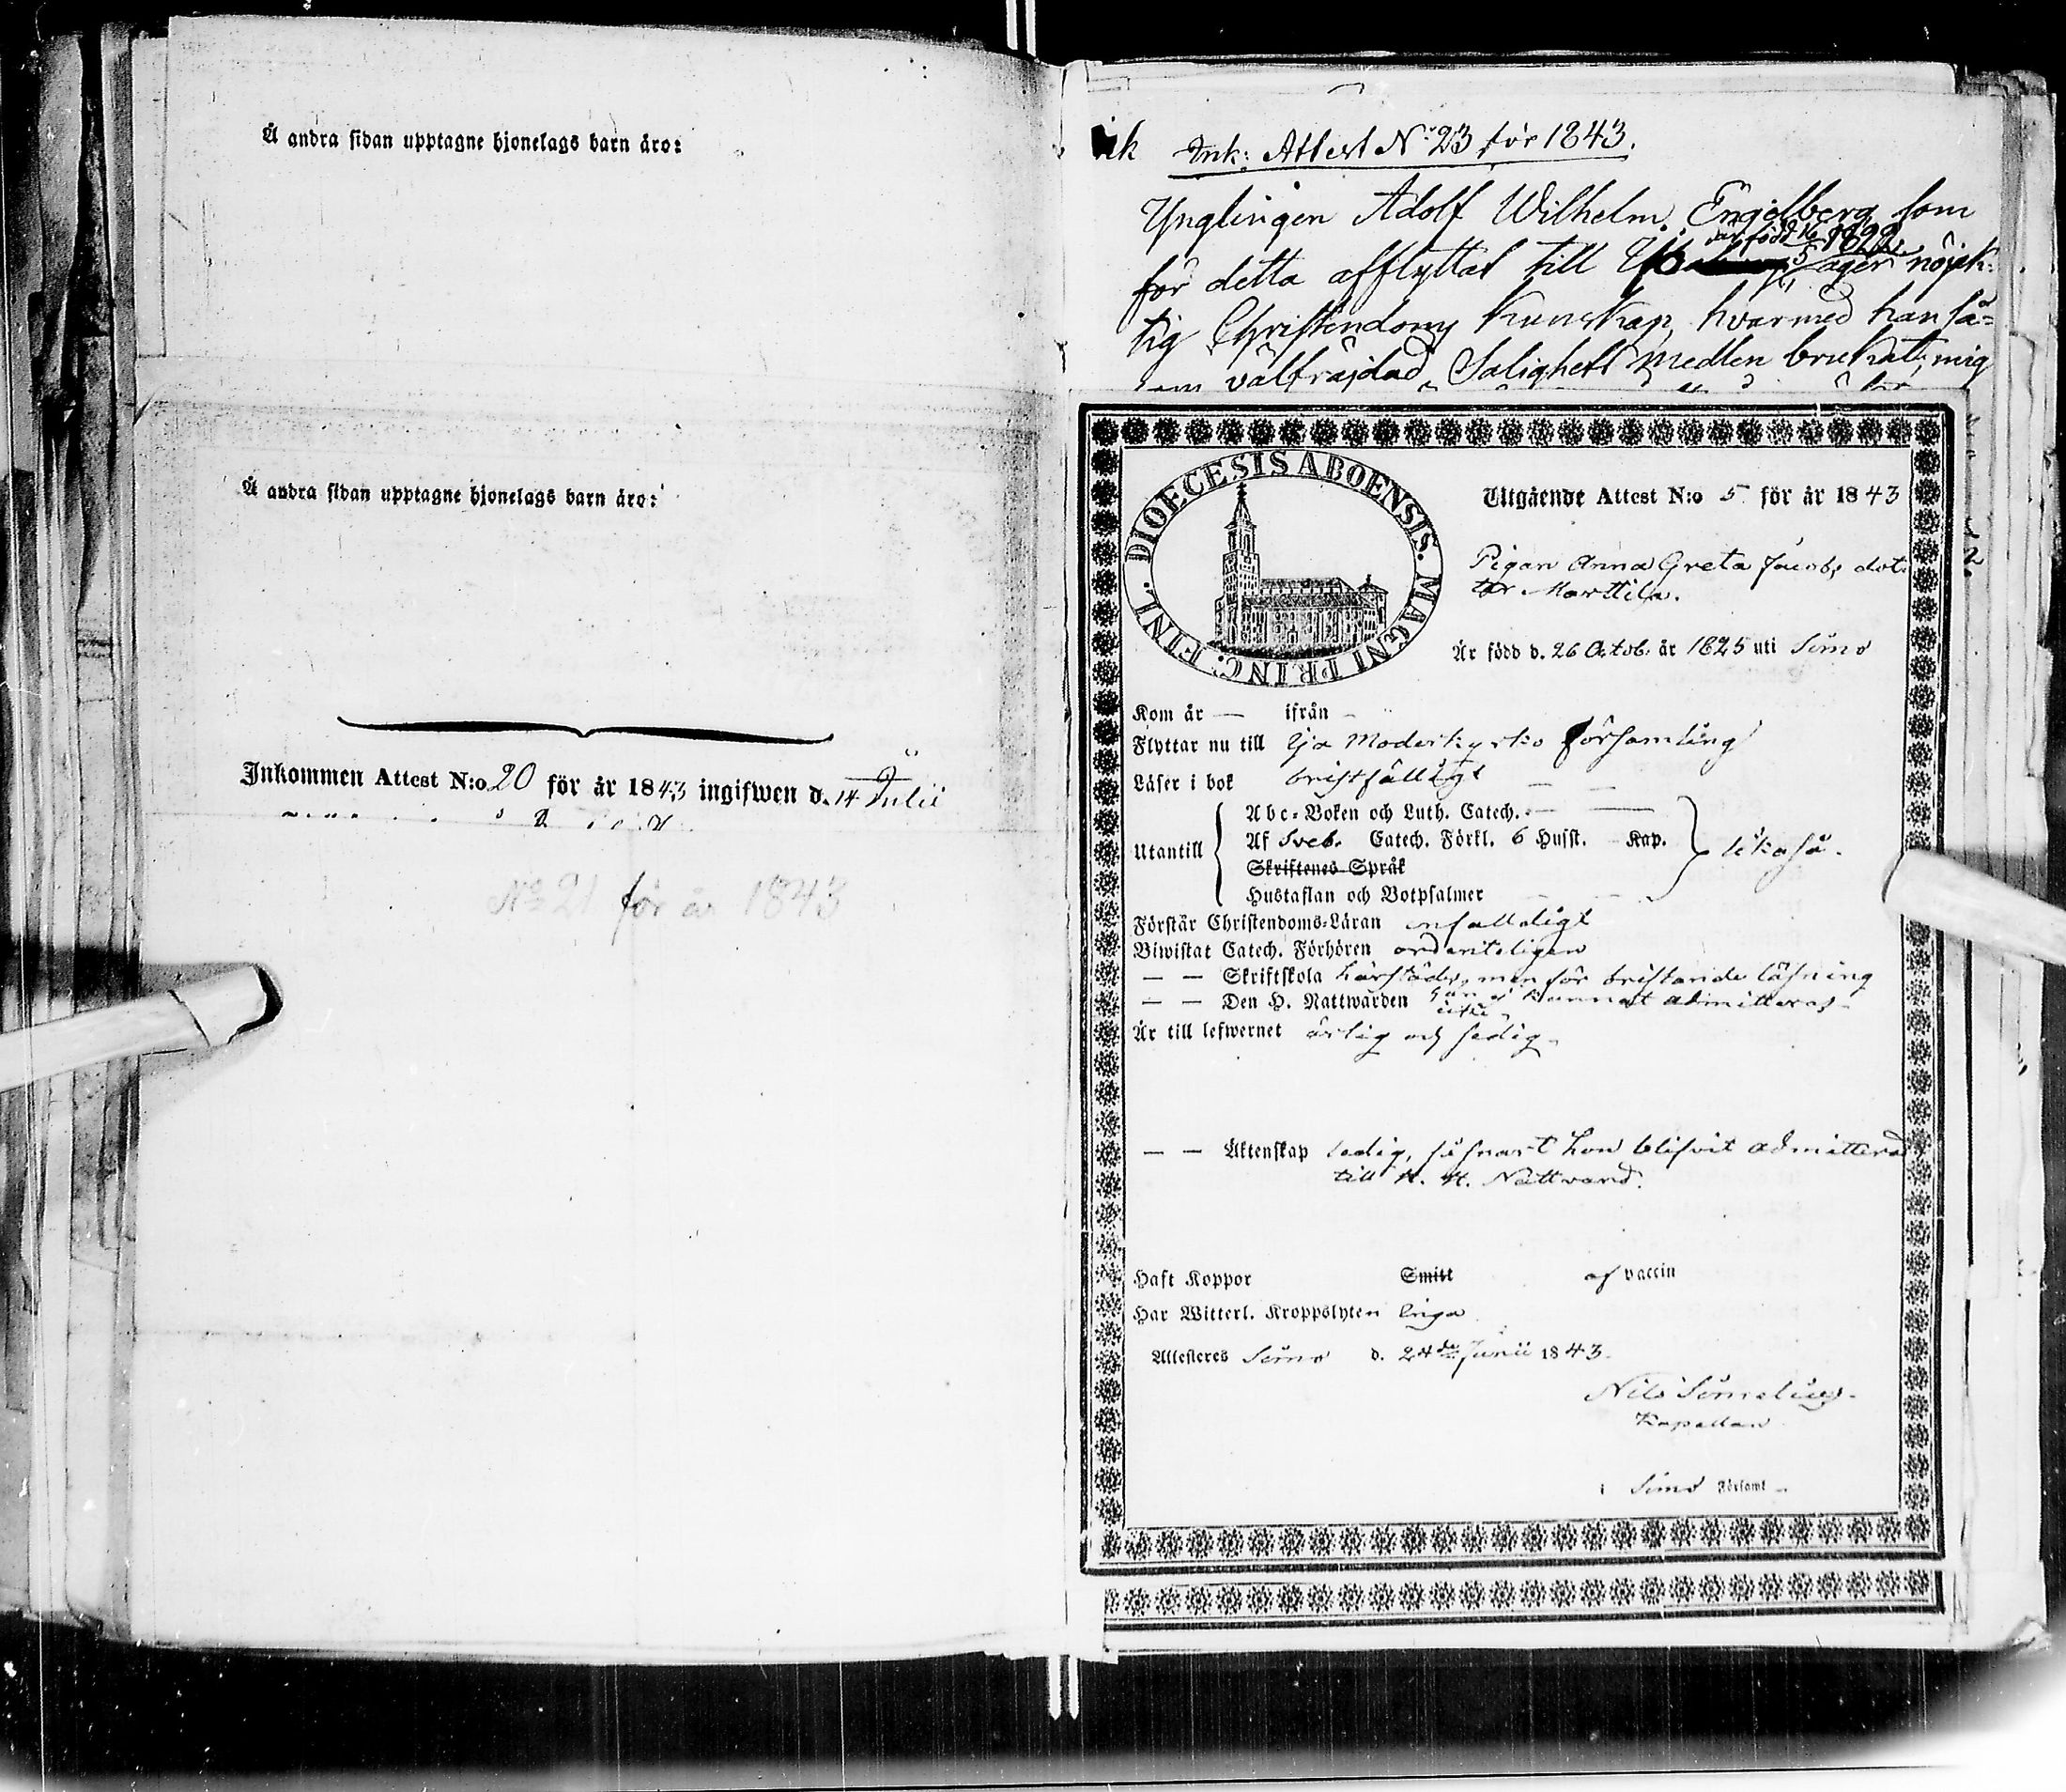 Å andra sidan upptagne hjonelags barn äro:
Å andra sidan upptagne hjonelags barn äro:
Inkommen Attest N:o 20 för år 1843 ingifwen d. 14 Julii
No 21 för år 1843
Ink: Attest No 23 för 1843.
Ynglingen Adolf Wilhelm Engelberg som
är född 1822
för detta afflyttat till äger nöjak:
tig Christendoms Kunskap, hvarmed han så=
som välfräjdad Salighets Medlen brukat; mig
DIOECESIS ABOENSIS. MAGNI PRINC: FINL.
Utgående Attest N:o 5 för år 1843
Pigan Anna Greta Jacobs dot
ter Marttila.
Är född d. 26 Octob. år 1825 uti Simo
Kom år — ifrån —
Flyttar nu till Ijo Moderkyrko församling
Läser i bok bristfälligt
Utantill
Abc-Boken och Luth. Catech. —
Af Sveb. Catech. Förkl. 6 Husst. Kap.
Skriftenes Språk
Hustaflan och Botpsalmer
likaså.
Förstår Christendoms-Läran enfalldigt
Biwistat Catech. Förhören ordenteligen
— — Skriftskola härstädes, men för bristande läsning
— — Den H. Nattwarden kunnat admitteras
Är till lefwernet ärlig och sedig
— — Äktenskap ledig, så snart hon blifvit admitterad
till H. H. Nattvard.
Haft Koppor Smitt af vaccin
Har Witterl. Kroppslyten inga
Attesteres Simo d. 24de Junii 1843.
Nils Simelius
Kapellan
i Simo Församl